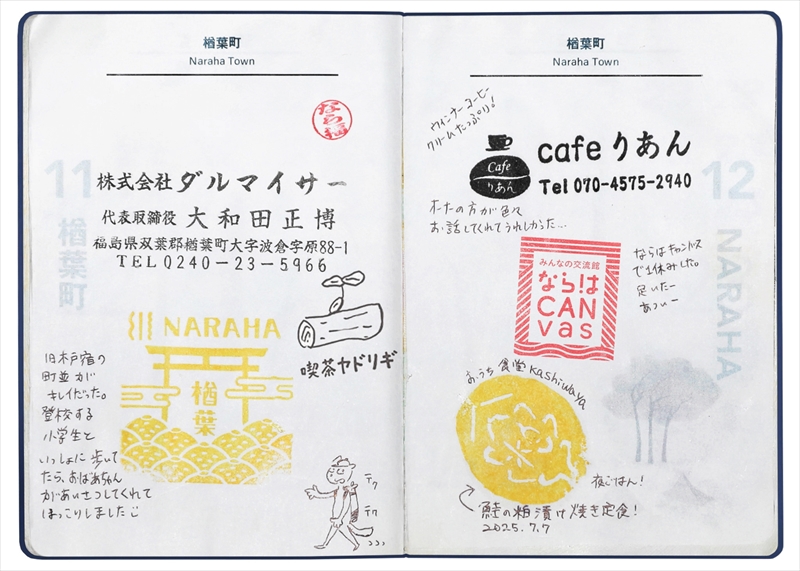 楢葉町
Naraha Town
なら福
株式会社 ダルマイサー
代表取締役 大和田正博
福島県双葉郡楢葉町大字波倉字原88-1
TEL 0240-23-5966
11
楢葉町
喫茶ヤドリギ
NARAHA
楢葉
旧木戸宿の
町並が
キレイだった。
登校する
小学生と
いっしょに歩いて
たら、おばあちゃん
があいさつしてくれて
ほっこりしました
テク
テク
楢葉町
Naraha Town
ウィンナーコーヒー
クリームたっぷり!
Cafe
りあん
cafe りあん
Tel 070-4575-2940
オーナーの方が色々
お話してくれてうれしかった…
12
NARAHA
みんなの交流館
なら!は
CAN
vas
ならはキャンバス
で1休みした。
足いたー
あつぃー
おうち食堂 Kashiwaya
夜ごはん!
鮭の粕漬け焼き定食!
2025.7.7